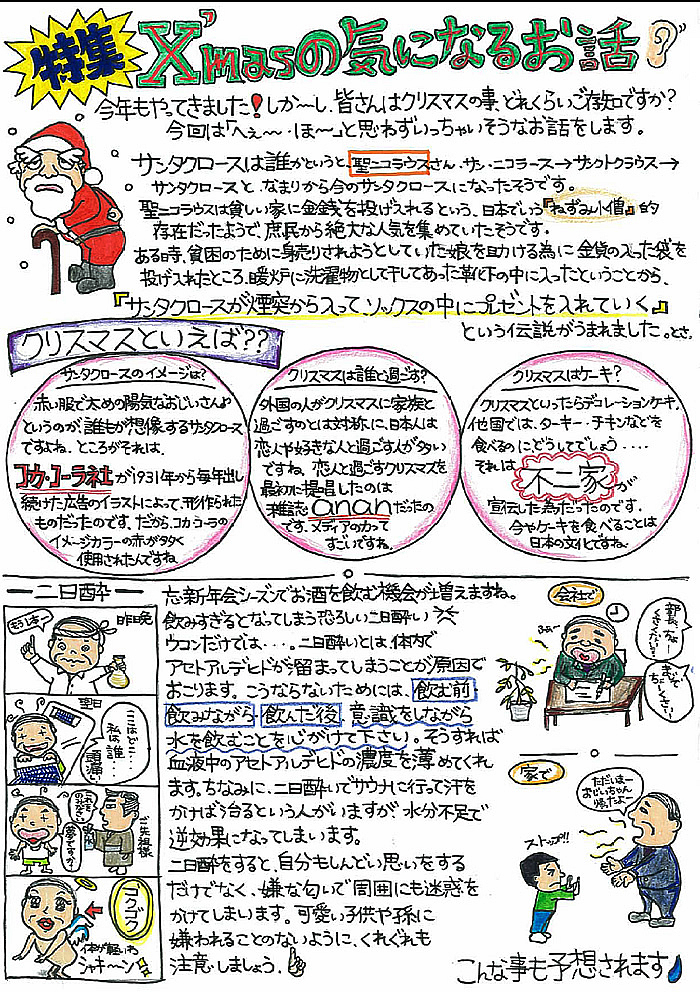 特集
X'masの気になるお話
今年もやってきました!しか〜し、皆さんはクリスマスの事、どれくらいご存知ですか?
今回は「へぇ〜・ほ〜」と思わずいっちゃいそうなお話をします。
サンタクロースは誰かというと、聖ニコラウスさん。サン・ニコラース→サンクトクラウス→
サンタクロースと、なまりから今のサンタクロースになったそうです。
聖ニコラウスは貧しい家に金銭を投げ入れるという、日本でいう『ねずみ小僧』的
存在だったようで、庶民から絶大な人気を集めていたそうです。
ある時、貧困のために身売りされようとしていた娘を助ける為に金貨の入った袋を
投げ入れたところ、暖炉に洗濯物として干してあった靴下の中に入ったということから、
『サンタクロースが煙突から入って、ソックスの中にプレゼントを入れていく』
という伝説がうまれました。とさ。
クリスマスといえば??
サンタクロースのイメージは?
赤い服で太めの陽気なおじいさん♪
というのが、誰もが想像するサンタクロース
ですよね。ところがそれは、
コカ・コーラ社が1931年から毎年出し
続けた広告のイラストによって、形作られた
ものだったのです。だから、コカ・コーラの
イメージカラーの赤が多く
使用されたんですね
クリスマスは誰と過ごす?
外国の人がクリスマスに家族と
過ごすのとは対称に、日本人は
恋人や好きな人と過ごす人が多い
ですね。恋人と過ごすクリスマスを
最初に提唱したのは
雑誌ananだったの
です。メディアの力って
すごいですね。
クリスマスはケーキ?
クリスマスといったらデコレーションケーキ。
他国では、ターキー・チキンなどを
食べるのにどうしてでしょう....
それは不二家が
宣伝した為だったのです。
今やケーキを食べることは
日本の文化ですね。
二日酔
もう1本!
昨日晩
翌日
ここはどこ…
私は誰…
頭痛…
これをのみなさい
ご先祖様
夢ですか?
ゴクゴク
体が軽いわ
シャキーン
忘新年会シーズンでお酒を飲む機会が増えますね。
飲みすぎるとなってしまう恐ろしい二日酔い
ウコンだけでは・・・。二日酔いとは、体内で
アセトアルデヒドが溜まってしまうことが原因で
おこります。こうならないためには、飲む前
飲みながら 飲んだ後、意識をしながら
水を飲むことを心がけて下さい。そうすれば
血液中のアセトアルデヒドの濃度を薄めてくれ
ます。ちなみに、二日酔いでサウナに行って汗を
かけば治るという人がいますが、水分不足で
逆効果になってしまいます。
二日酔をすると、自分もしんどい思いをする
だけでなく、嫌な匂いで周囲にも迷惑を
かけてしまいます。可愛い子供や孫に
嫌われることのないように、くれぐれも
注意しましょう。
会社で
ふぁ〜
部長、な〜んか
くさくない?
家で
ただいまー
おじいちゃん
帰ったよー
ストップ!!
こんな事も予想されます